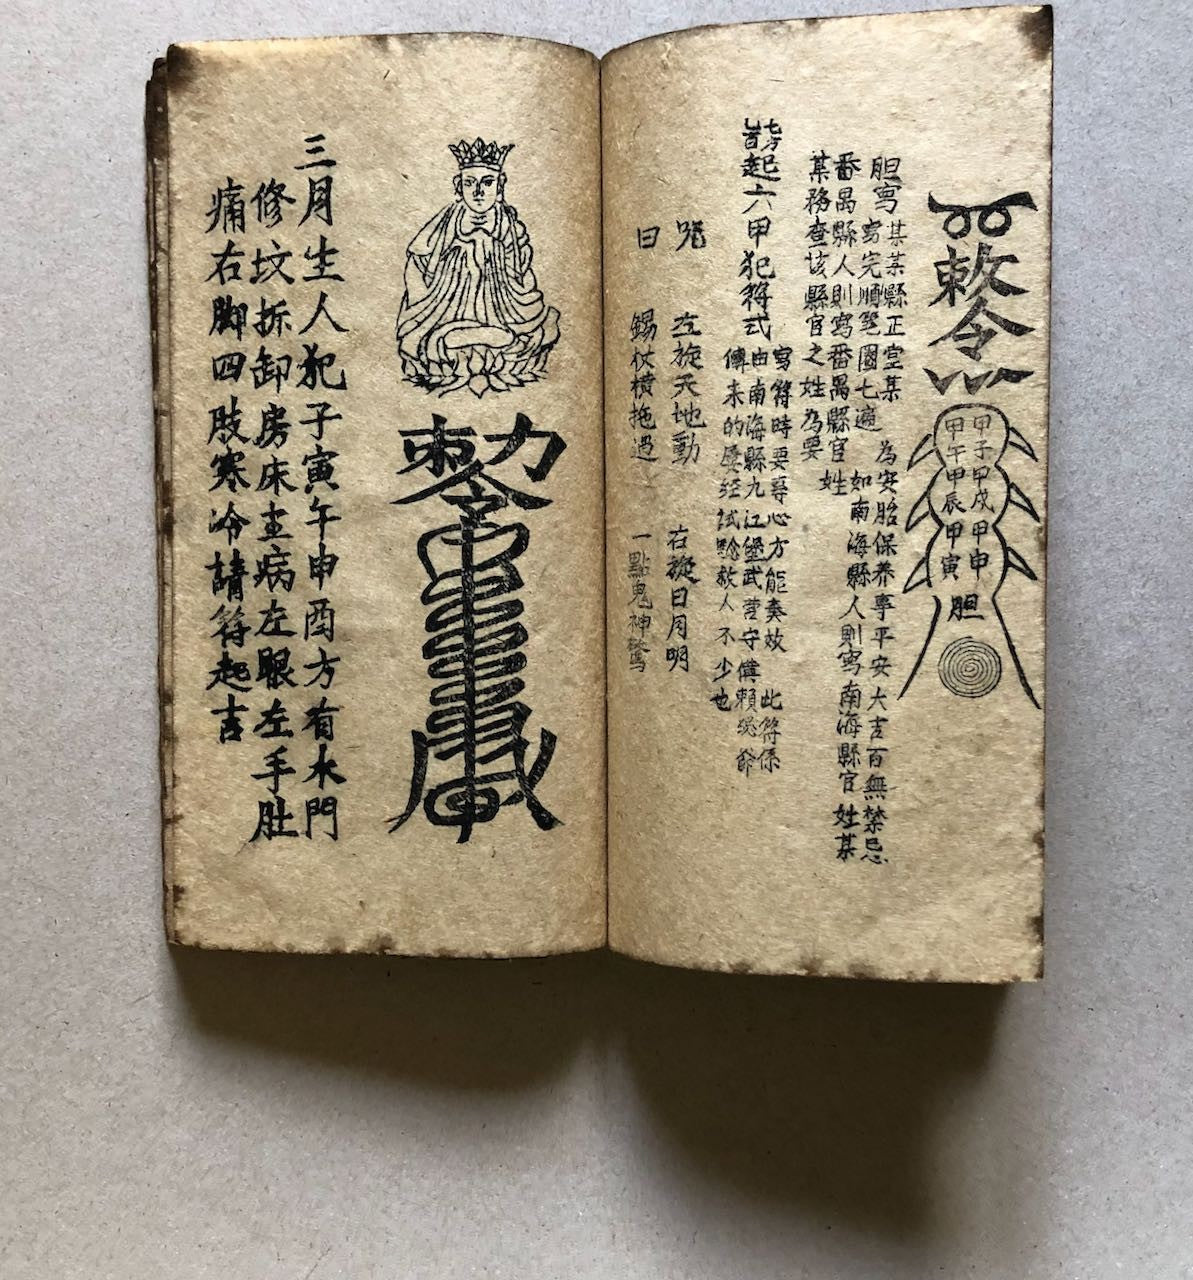 敕令
甲子甲戌甲申
甲午甲辰甲寅
胆
胆寫某某縣正堂某 為安胎保養事平安大吉百無禁忌
寫完順筆圈七遍 如南海縣人則寫南海縣官姓某
番禺縣人則寫番禺縣官姓
某務查該縣官之姓為要
起六甲犯符式
寫符時要專心方能奏效 此符係
由南海縣九江堡武營守備賴
傳來的屡经試驗救人不少也
咒曰
左旋天地動 右旋日月明
錫杖橫拖過 一點鬼神驚
三月生人犯子寅午申酉方有水門
修坟拆卸房床主病左眼左手肚
痛右脚四肢寒冷請符起吉